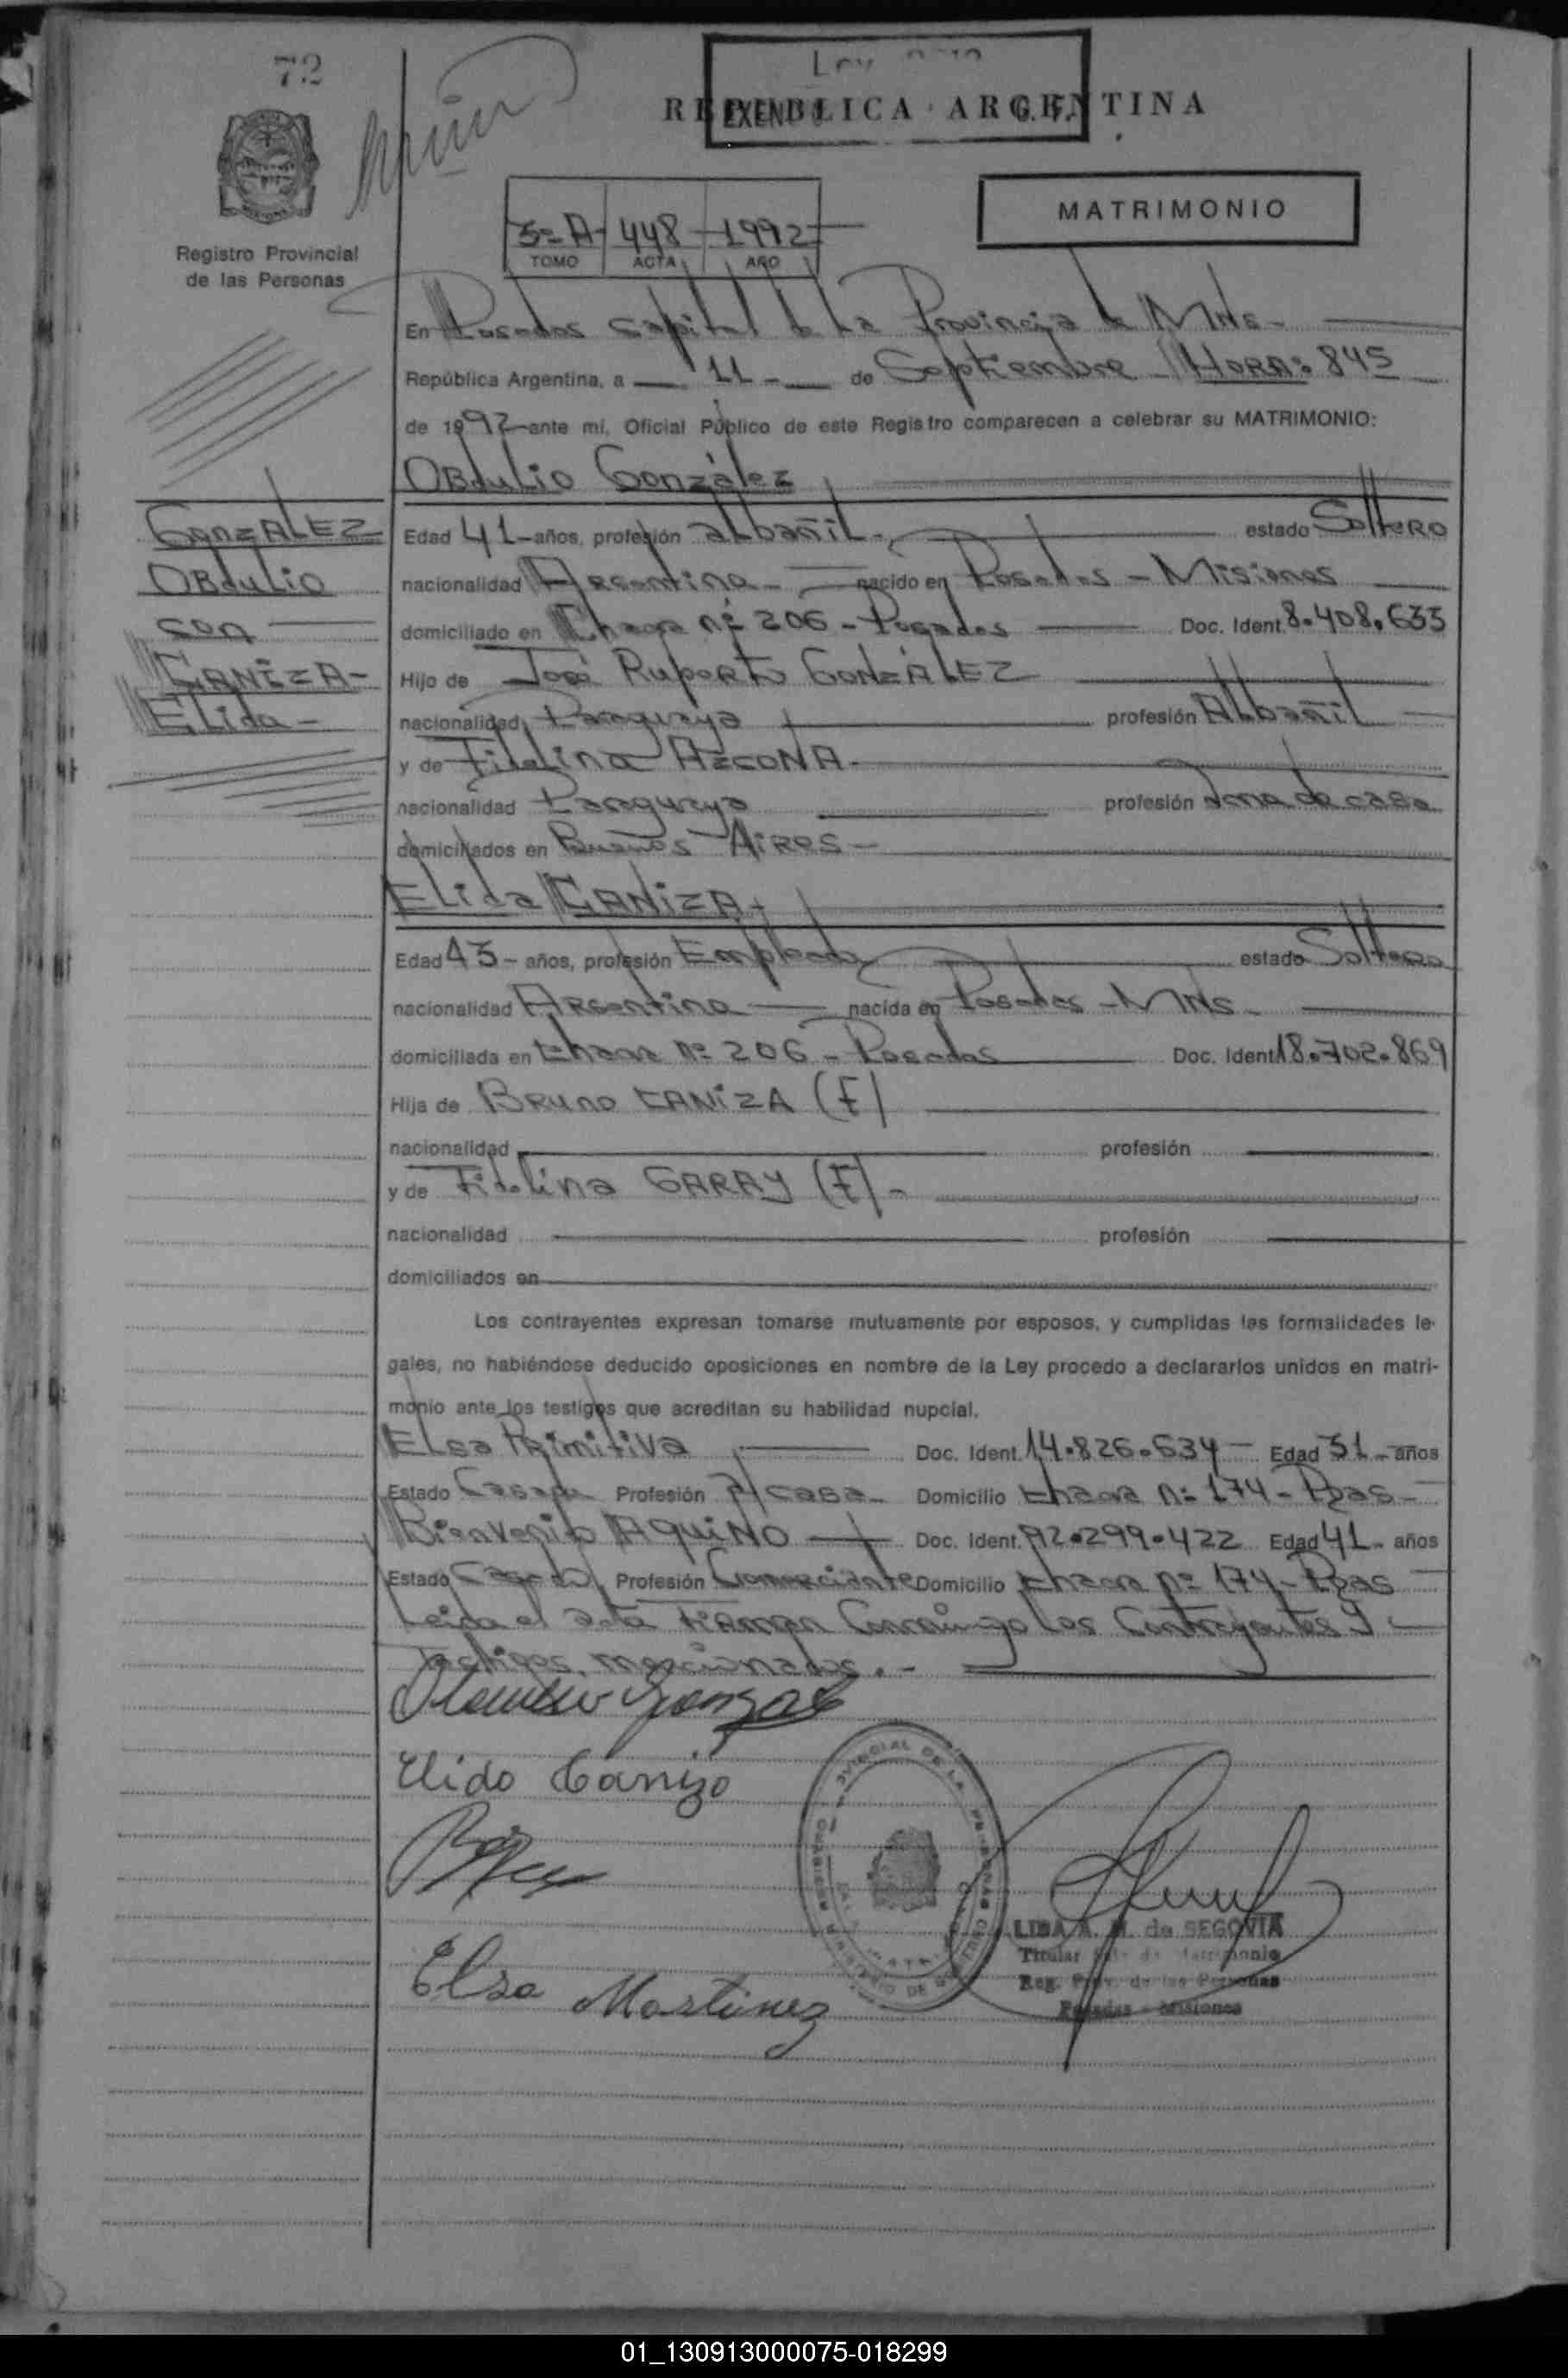 72
Ley
EXENTO G. F.
REPUBLICA ARGENTINA
Registro Provincial
de las Personas
MATRIMONIO
3º A - 448 - 1992
TOMO ACTA AÑO
En Posadas Capital de La Provincia de Mnes -
República Argentina, a 11 - de Septiembre HORA: 845
de 1992 ante mí, Oficial Público de este Registro comparecen a celebrar su MATRIMONIO:
Obdulio González
GonzALEZ
Obdulio
con
CANIZA -
Elida -
Edad 41 - años, profesión albañil - estado Soltero
nacionalidad Argentina - nacido en Posadas - Misiones
domiciliado en Chacra nº 206 - Posadas Doc. Ident. 8.408.633
Hijo de José Ruperto GONZALEZ
nacionalidad Paraguaya profesión Albañil
y de Fidelina AZCONA -
nacionalidad Paraguaya profesión Ama de casa
domiciliados en Buenos Aires -
Elida CANIZA -
Edad 43 - años, profesión Empleada estado Soltera
nacionalidad Argentina nacida en Posadas - Mnes -
domiciliada en Chacra nº 206 - Posadas Doc. Ident. 18.702.869
Hija de Bruno CANIZA (F)
nacionalidad profesión
y de Fidelina GARAY (F) -
nacionalidad profesión
domiciliados en
Los contrayentes expresan tomarse mutuamente por esposos, y cumplidas las formalidades le-
gales, no habiéndose deducido oposiciones en nombre de la Ley procedo a declararlos unidos en matri-
monio ante los testigos que acreditan su habilidad nupcial.
Elsa Primitiva Doc. Ident. 14.826.634 - Edad 31 - años
Estado Casada Profesión a/casa - Domicilio Chacra nº 174 - Pdas -
Bienvenido AQUINO Doc. Ident. 92.299.422 Edad 41 - años
Estado Casado Profesión Comerciante Domicilio Chacra nº 174 - Pdas
Leida el acta Firman Conmigo los Contrayentes y
testigos mencionados. -
Elido Caniza
Elsa Martinez
LIDA A. M. de SEGOVIA
Titular de Matrimonio
Reg. Prov. de las Personas
Posadas - Misiones
01_130913000075-018299